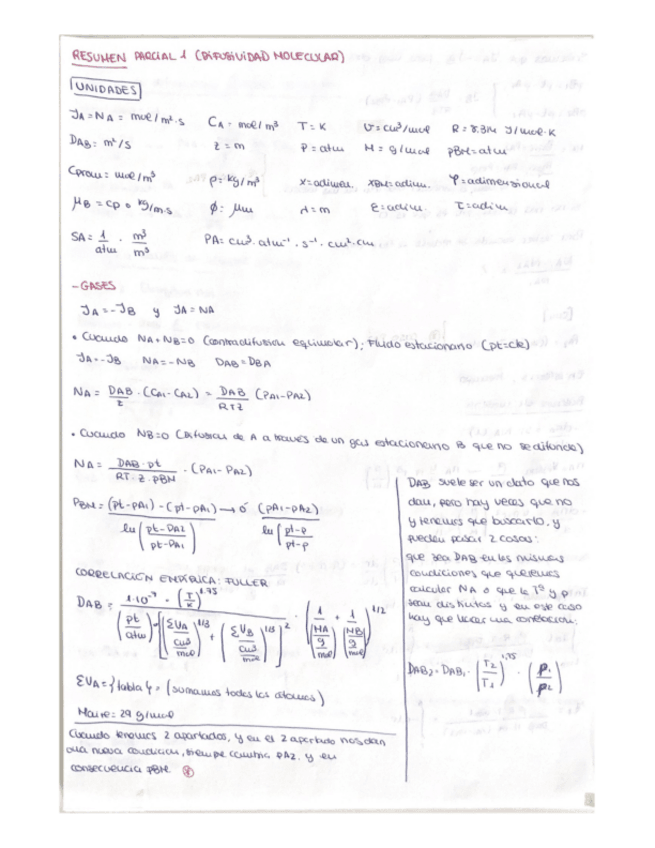 RESUMEN PARCIAL 1 (DIFUSIVIDAD MOLECULAR)
UNIDADES
JA = NA = mol/m²·s CA = mol/m³ T = K V = cm³/mol R = 8.314 J/mol·K
DAB = m²/s z = m P = atm M = g/mol pBM = atm
Cprom = mol/m³ ρ = kg/m³ x = adimen. xBM = adim. φ = adimensional
μB = cp o kg/m·s ϕ = μm = m ε = adim. τ = adim
SA = 1/atm · m³/m³ PA = cm³·atm⁻¹·s⁻¹·cm²·cm
- GASES
JA = -JB y JA = NA
• Cuando NA+NB=0 (contradifusión equimolar); Fluido estacionario (pt=cte)
JA = -JB NA = -NB DAB = DBA
NA = DAB/z · (CA1-CA2) = DAB/RTz (PA1-PA2)
• Cuando NB=0 (Difusión de A a través de un gas estacionario B que no se difunde)
NA = DAB·pt / RT·z·pBM · (PA1-PA2)
PBM = (pt-pA1)-(pt-pA1) / ln(pt-PA2 / pt-PA1) → ó (PA1-PA2) / ln(pt-p / pt-p)
CORRELACIÓN EMPÍRICA: FULLER
DAB = 1·10⁻⁷ · (T/K)^1.75 / (pt/atm)·[(ΣVA / cm³/mol)^1/3 + (ΣVB / cm³/mol)^1/3]² · (1 / MA g/mol + 1 / MB g/mol)^1/2
ΣVA = {tabla} = (sumamos todos los átomos)
Maire = 29 g/mol
Cuando tenemos 2 apartados, y en el 2 apartado nos dan
una nueva condición, siempre cambia PA2. y en
consecuencia PBM
DAB suele ser un dato que nos
dan, pero hay veces que no
y tenemos que buscarlo, y
pueden pasar 2 cosas:
que sea DAB en las mismas
condiciones que queremos
calcular NA o que la Tª y p
sean distintas y en este caso
hay que hacer una correlación:
DAB2 = DAB1 · (T2/T1)^1,75 · (P1/P2)